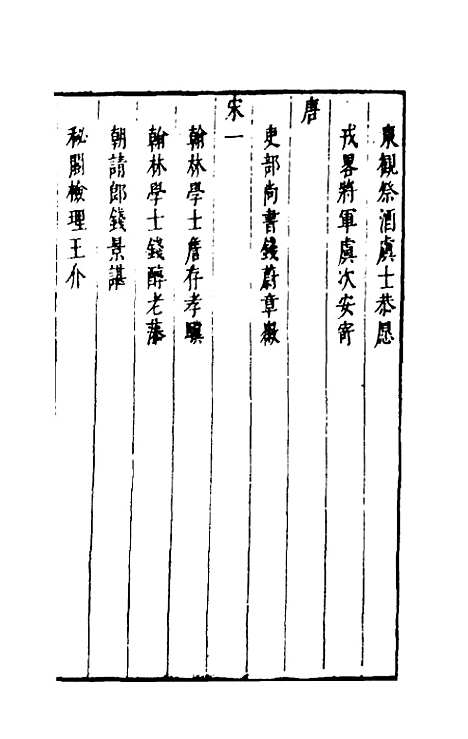 東觀祭酒虞士恭愿
戎畧將軍虞次安寄
唐
吏部尚書錢蔚章徽
宋一
翰林學士詹存孝騤
翰林學士錢醇老藻
朝請郎錢景諶
秘閣檢理王介